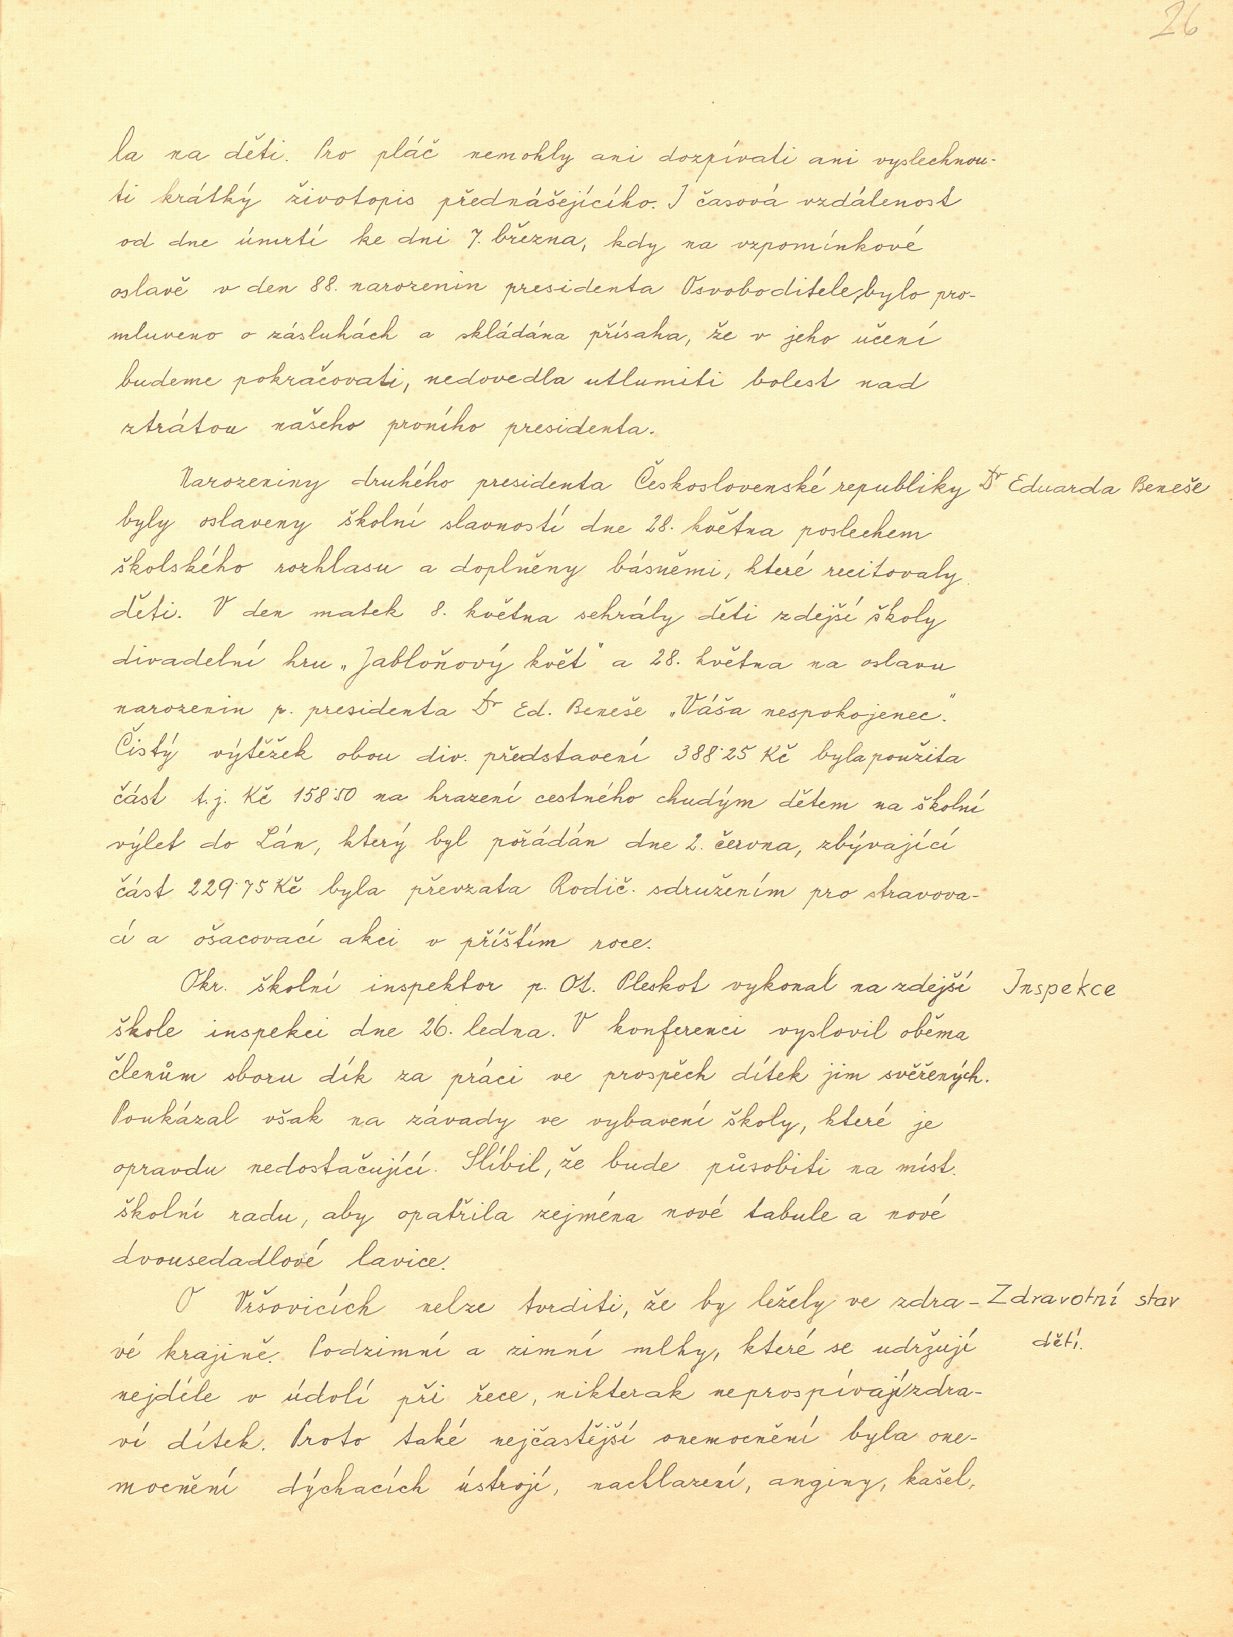 26
la na děti. Pro pláč nemohly ani dozpívati ani vyslechnou-
ti krátký životopis přednášejícího. I časová vzdálenost
od dne úmrtí ke dni 7. března, kdy na vzpomínkové
oslavě v den 88. narozenin presidenta Osvoboditele, bylo pro-
mluveno o zásluhách a skládána přísaha, že v jeho učení
budeme pokračovati, nedovedla utlumiti bolest nad
ztrátou našeho prvního presidenta.
Narozeniny druhého presidenta Československé republiky Dr Eduarda Beneše
byly oslaveny školní slavností dne 28. května poslechem
školského rozhlasu a doplněny básněmi, které recitovaly
děti. V den matek 8. května sehrály děti zdejší školy
divadelní hru „Jabloňový květ" a 28. května na oslavu
narozenin p. presidenta Dr Ed. Beneše „Váša nespokojenec".
Čistý výtěžek obou div. představení 388·25 Kč byla použita
část t.j. Kč 158·50 na hrazení cestného chudým dětem na školní
výlet do Lán, který byl pořádán dne 2. června, zbývající
část 229·75 Kč byla převzata Rodič. sdružením pro stravova-
cí a ošacovací akci v příštím roce.
Okr. školní inspektor p. Ot. Pleskot vykonal na zdejší Inspekce
škole inspekci dne 26. ledna. V konferenci vyslovil oběma
členům sboru dík za práci ve prospěch dítek jim svěřených.
Poukázal však na závady ve vybavení školy, které je
opravdu nedostačující. Slíbil, že bude působiti na míst.
školní radu, aby opatřila zejména nové tabule a nové
dvousedadlové lavice.
O Vršovicích nelze tvrditi, že by ležely ve zdra- Zdravotní stav
vé krajině. Podzimní a zimní mlhy, které se udržují dětí.
nejdéle v údolí při řece, nikterak neprospívají zdra-
ví dítek. Proto také nejčastější onemocnění byla one-
mocnění dýchacích ústrojí, nachlazení, anginy, kašel,